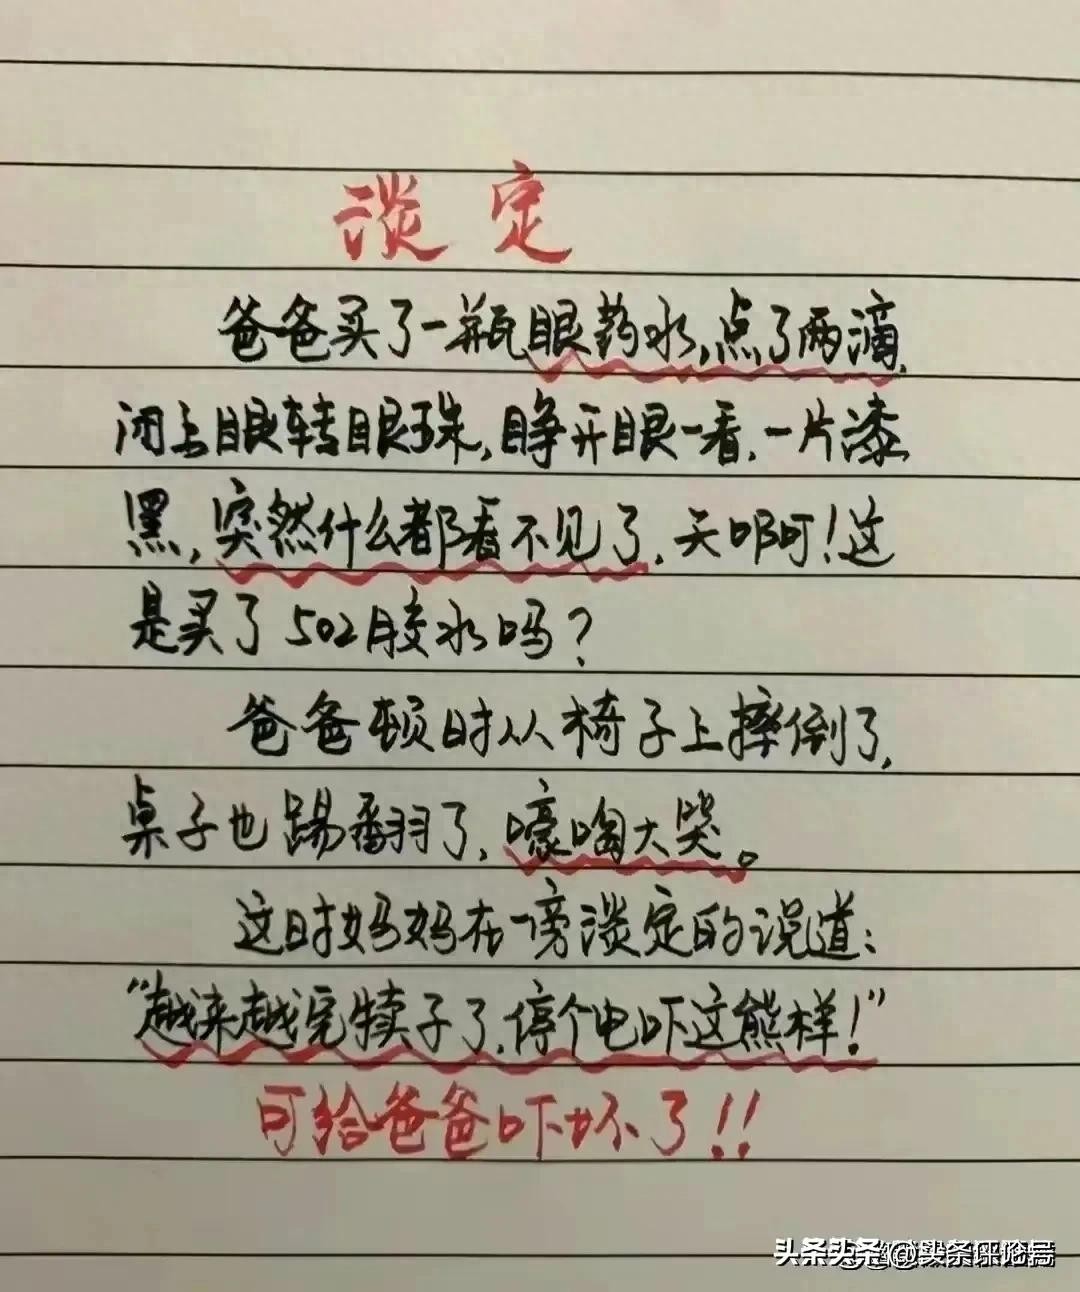 淡定
爸爸买了一瓶眼药水,点了两滴,
闭上眼转眼珠,睁开眼一看,一片漆
黑,突然什么都看不见了,天哪!这
是买了502胶水吗?
爸爸顿时从椅子上摔倒了,
桌子也踢翻了,嚎啕大哭。
这时妈妈在一旁淡定的说道:
“越来越完犊子了,停个电吓这熊样!”
可给爸爸吓坏了!!
头条头条@头条评论局